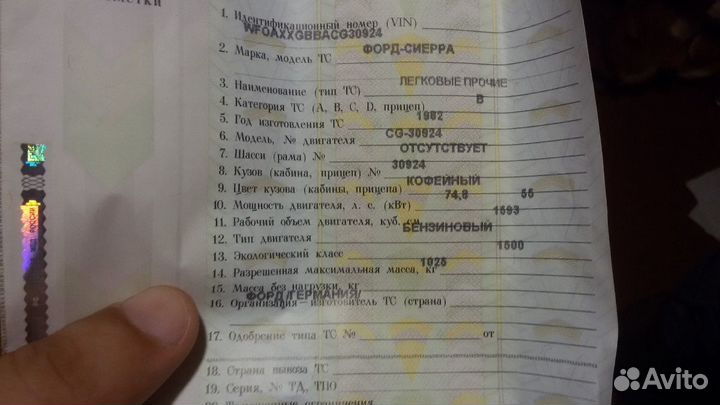 ОТМЕТКИ
1. Идентификационный номер (VIN)
WF0AXXGBBACG30924
2. Марка, модель ТС ФОРД-СИЕРРА
3. Наименование (тип ТС) ЛЕГКОВЫЕ ПРОЧИЕ
4. Категория ТС (A, B, C, D, прицеп) B
5. Год изготовления ТС 1982
6. Модель, № двигателя CG-30924
7. Шасси (рама) № ОТСУТСТВУЕТ
8. Кузов (кабина, прицеп) № 30924
9. Цвет кузова (кабины, прицепа) КОФЕЙНЫЙ
10. Мощность двигателя, л. с. (кВт) 74,8 55
11. Рабочий объем двигателя, куб. см 1593
12. Тип двигателя БЕНЗИНОВЫЙ
13. Экологический класс
14. Разрешенная максимальная масса, кг 1500
15. Масса без нагрузки, кг 1025
16. Организация-изготовитель ТС (страна)
ФОРД /ГЕРМАНИЯ/
17. Одобрение типа ТС № от
18. Страна вывоза ТС
19. Серия, № ТД, ТПО
МВД РОССИИ
Avito